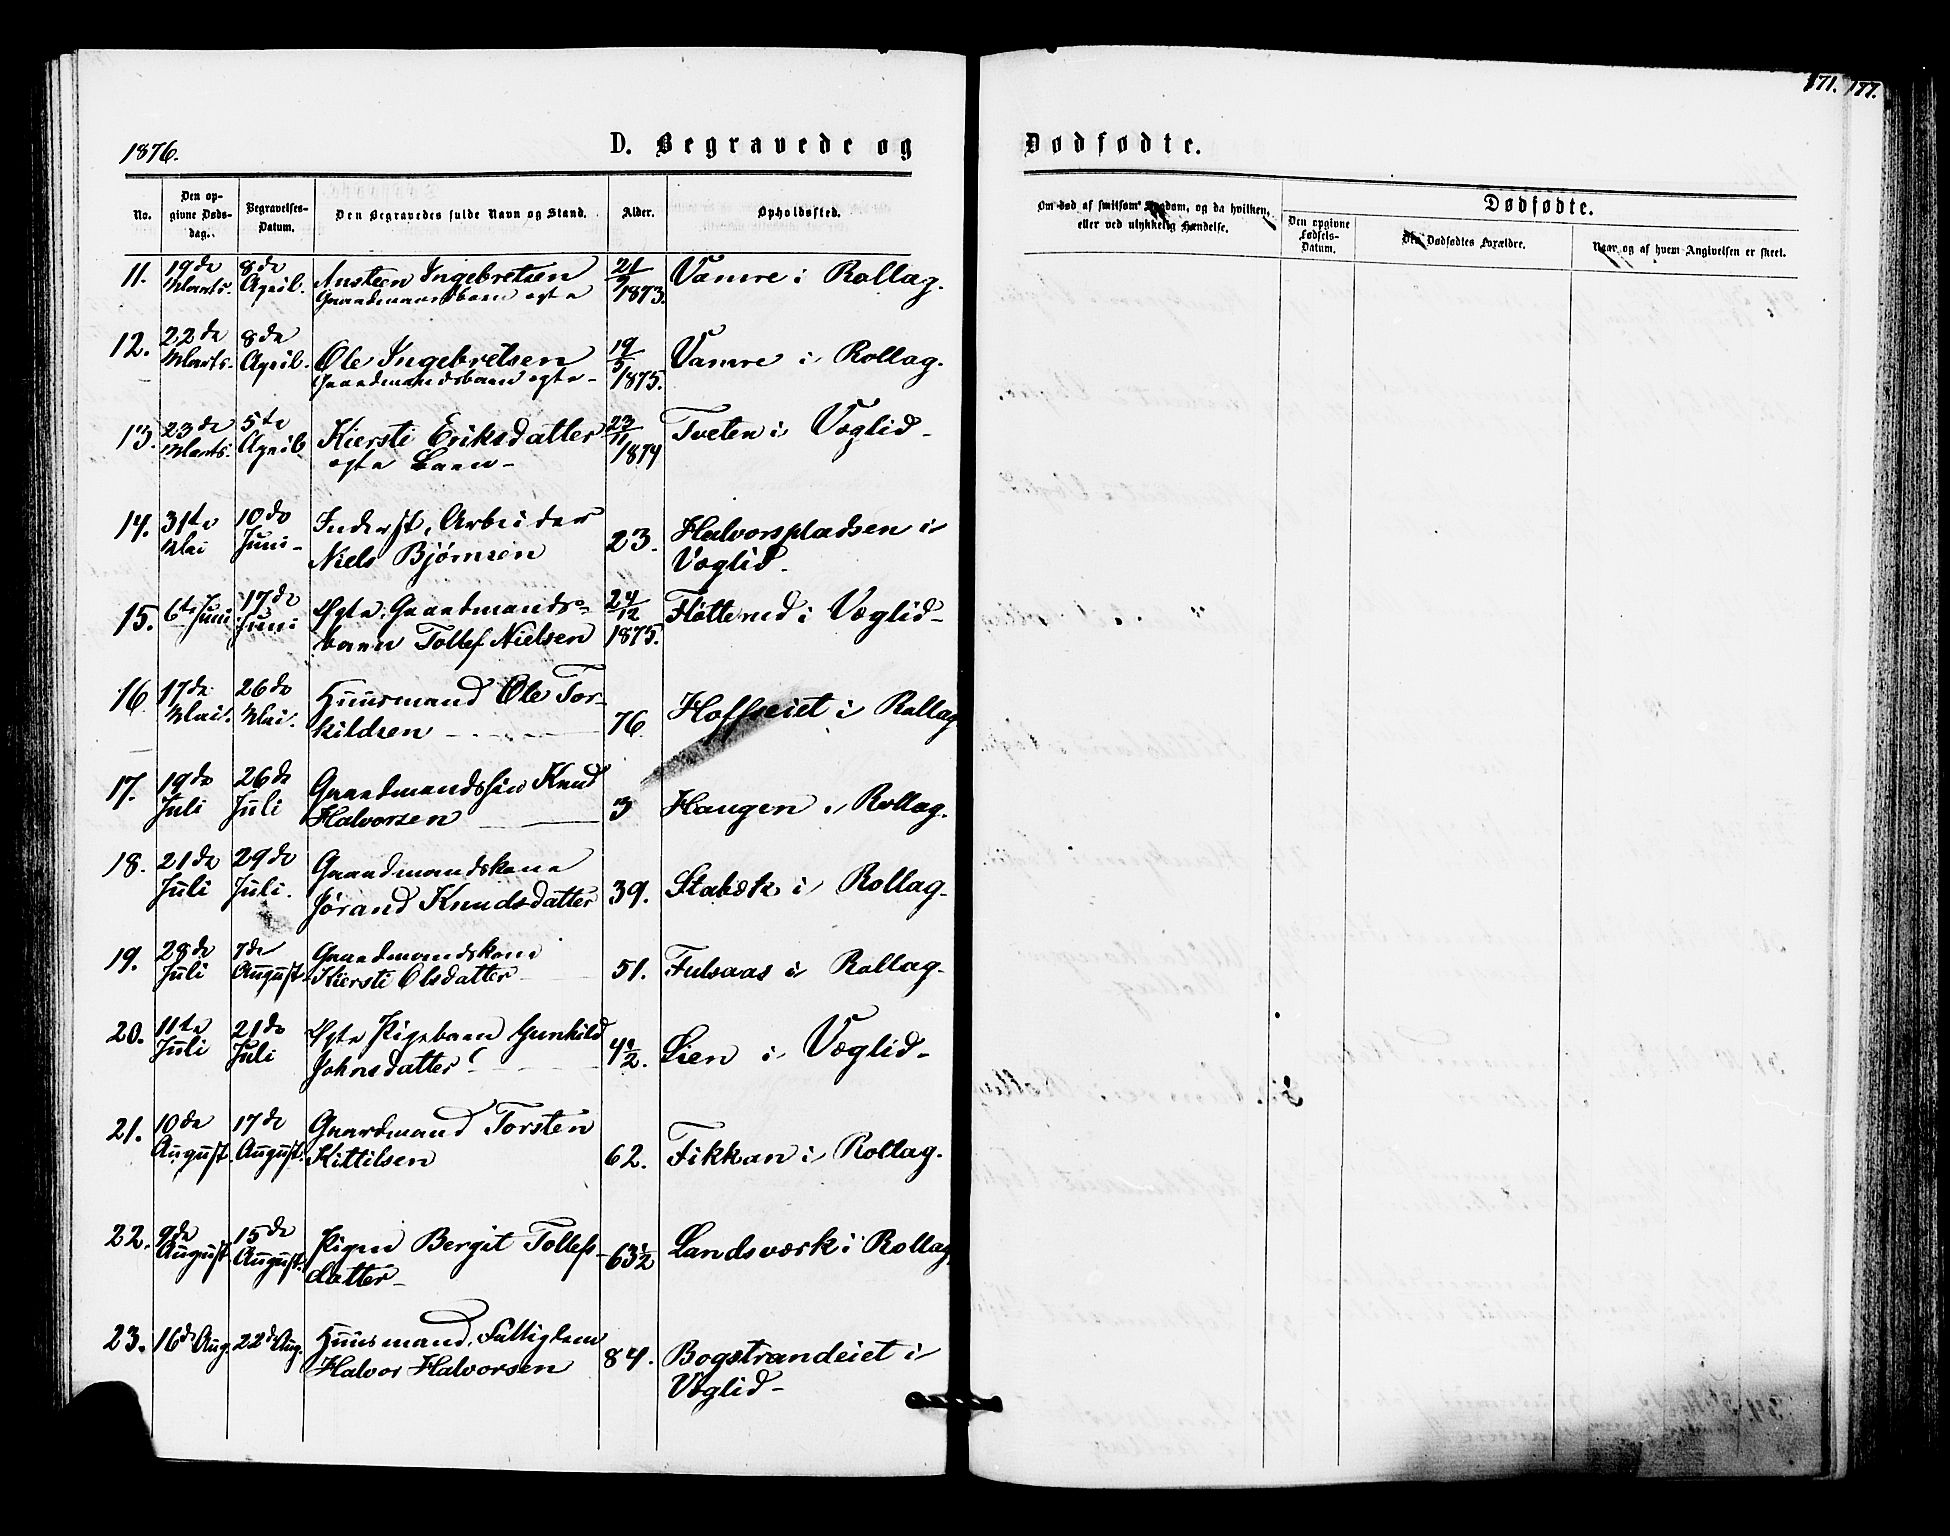 171. 177.
1876.
D. Begravede og
Dødfødte.
No.
Den op-
givne Døds-
dag.
Begravelses-
Datum.
Den Begravedes fulde Navn og Stand.
Alder.
Opholdssted.
Om død af smitsom Sygdom, og da hvilken,
eller ved ulykkelig Hændelse.
Dødfødte.
Den opgivne
Fødsels-
Datum.
Den Dødfødtes Forældre.
Naar og af hvem Angivelsen er skeet.
11. 19de Marts. 8de April. Austeen Ingebretsen
Gaardmandsbarn egte
1873. Vamre i Rollag.
12. 22de Marts. 8de April. Ole Ingebretsen
Gaardmandsbarn egte
19/5 1875. Vamre i Rollag.
13. 23de Marts. 5te April Kiersti Eriksdatter
egte Barn
23/11 1874 Tveten i Væglid
14. 31te Mai 10de Juni Inderst, Arbeider
Niels Bjørnsen
23. Halvorspladsen i
Væglid.
15. 6te Juni 17de Juni Ægte Gaardmands-
barn Tollef Nielsen
24/12 1875. Fløtterud i Væglid
16 17de Mai. 26de Mai. Huusmand Ole Tor-
kildsen
76 Hoffseiet i Rollag
17. 19de Juli 26de Juli Gaardmandssøn Knud
Halvorsen
3 Haugen i Rollag.
18. 21de Juli 29de Juli. Gaardmandskone
Jørand Knudsdatter
39. Stabæk i Rollag
19. 28de Juli 7de August Gaardmandskone
Kiersti Olsdatter
51. Fulsaas i Rollag
20. 11te Juli 21de Juli Ægte Pigebarn Gunhild
Johnsdatter
4 1/2. Lien i Væglid
21. 10de August. 17de August. Gaardmand Torsten
Kittilsen
62. Fikkan i Rollag.
22. 9de August 15de August. Pigen Bergit Tollefs-
datter
63 1/2 Landsværk i Rollag
23. 16de Aug. 22de Aug. Huusmand, Fattiglem
Halvor Halvorsen
84. Bogstrandeiet i
Væglid